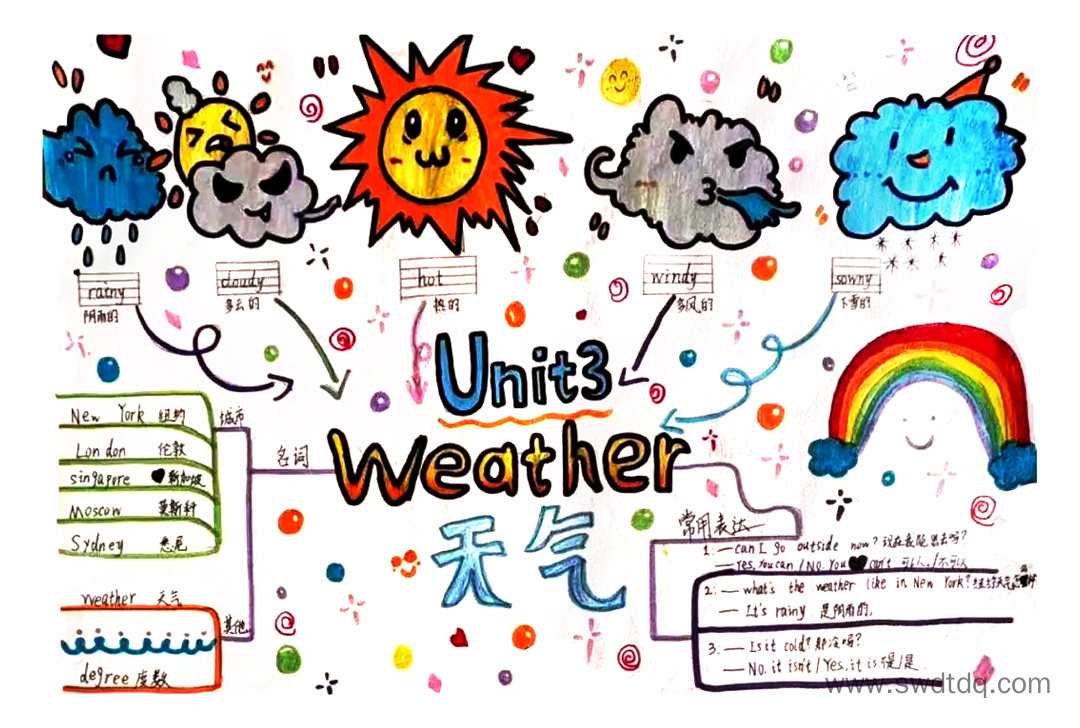 rainy
阴雨的
cloudy
多云的
hot
热的
windy
多风的
sowny
下雪的
Unit3
Weather
天气
名词
城市
New York 纽约
London 伦敦
singapore 新加坡
Moscow 莫斯科
Sydney 悉尼
其他
weather 天气
degree 度数
常用表达
1: — can I go outside now? 现在我能出去吗?
— Yes, You can / No. You can't 可以/不可以
2: — what's the weather like in New York? 纽约天气怎
— It's rainy 是阴雨的.
3: — Is it cold? 冷吗?
— No. it isn't / Yes. it is 是
www.swdtdq.com